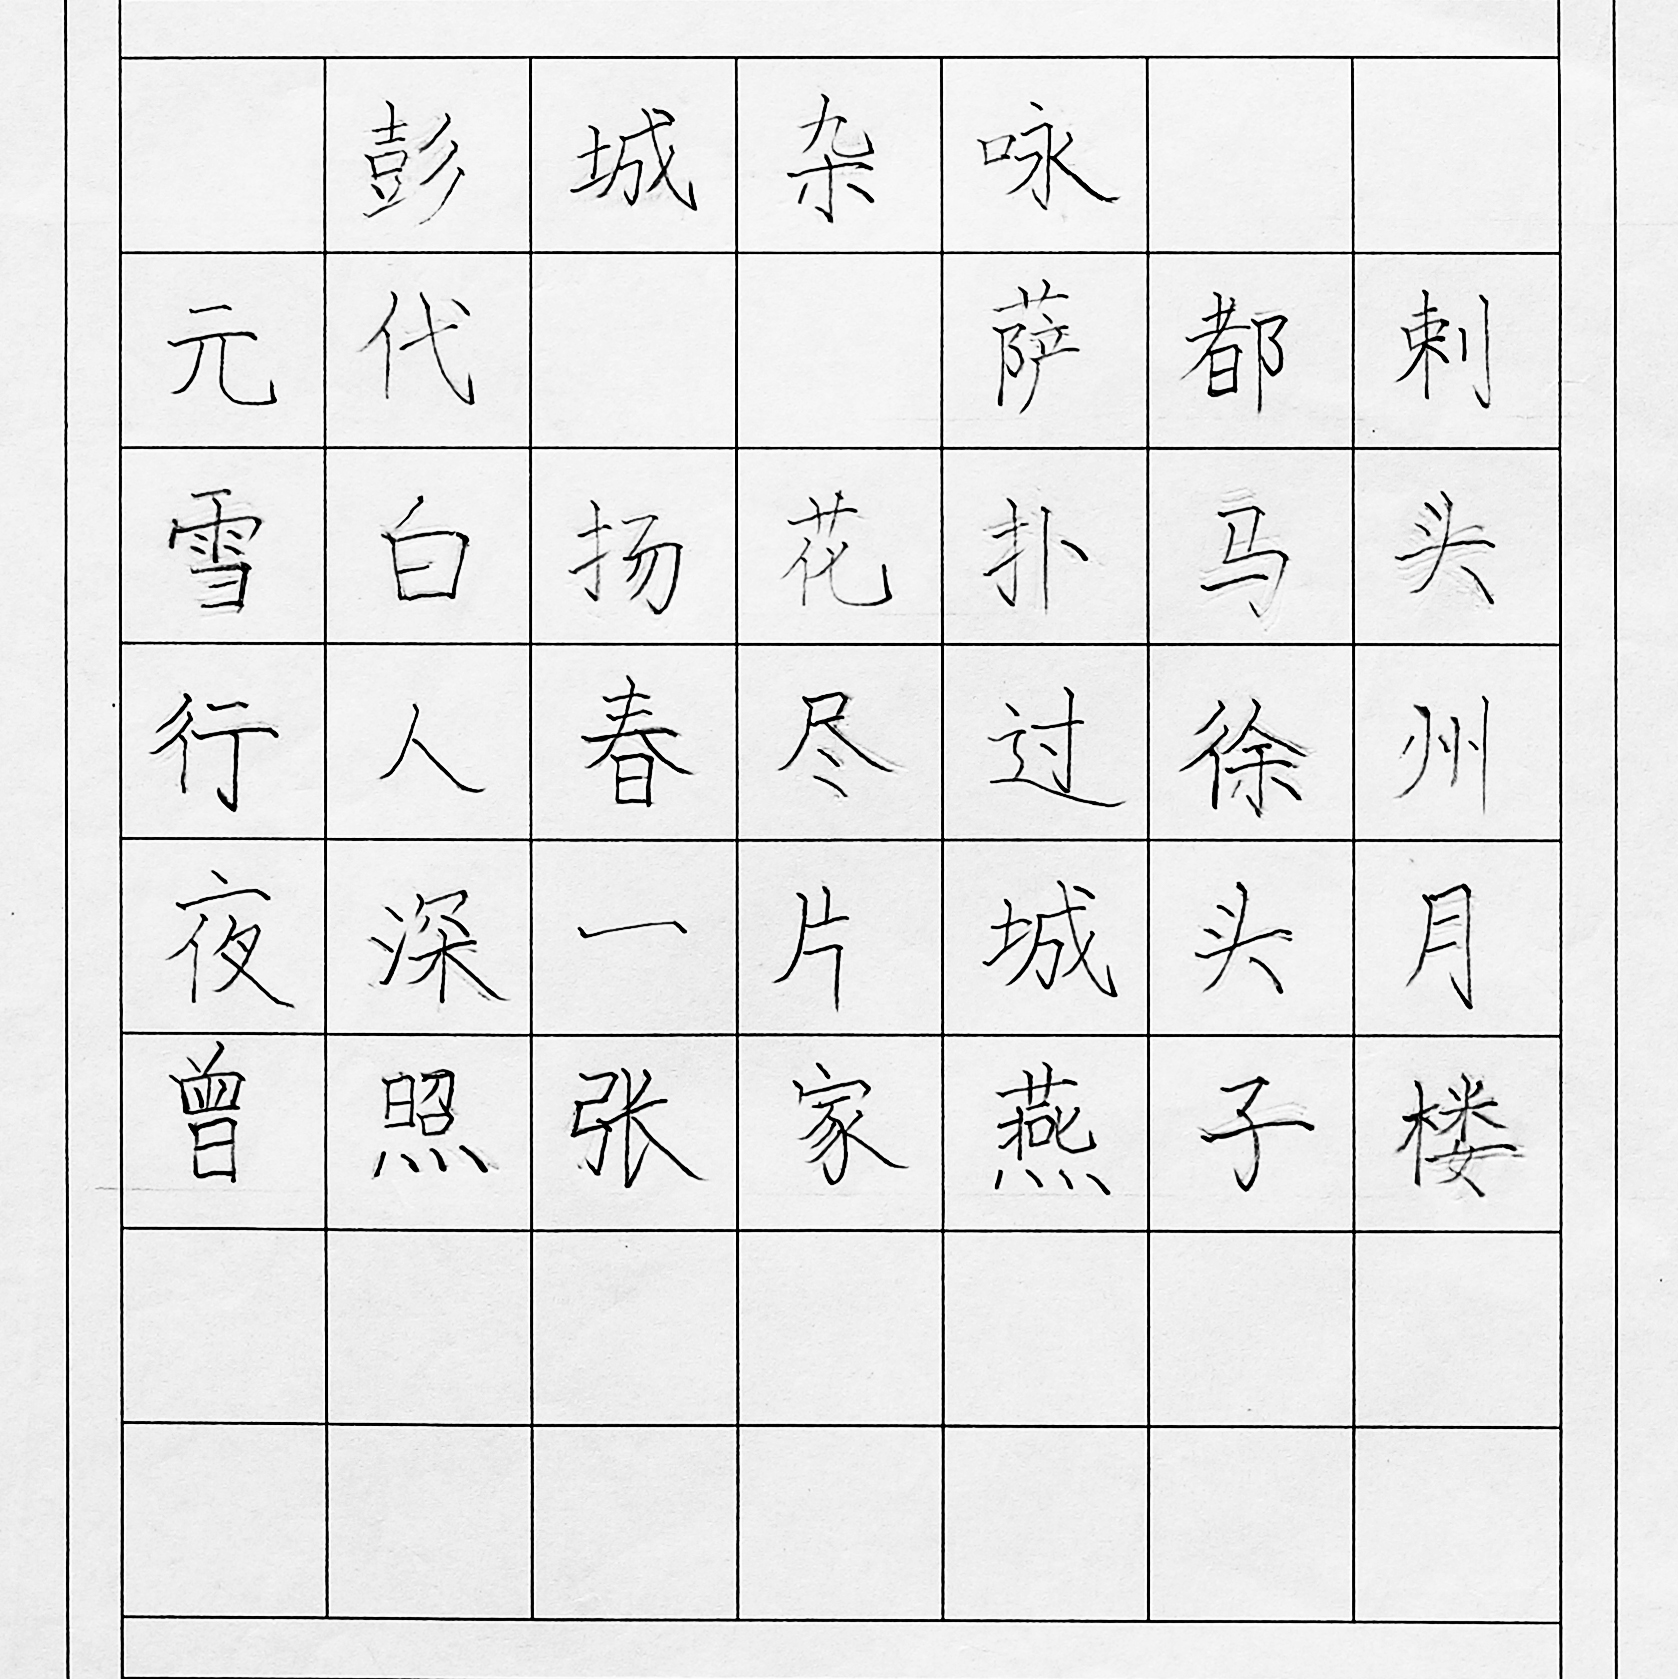 彭城杂咏
元代 萨都剌
雪白扬花扑马头
行人春尽过徐州
夜深一片城头月
曾照张家燕子楼